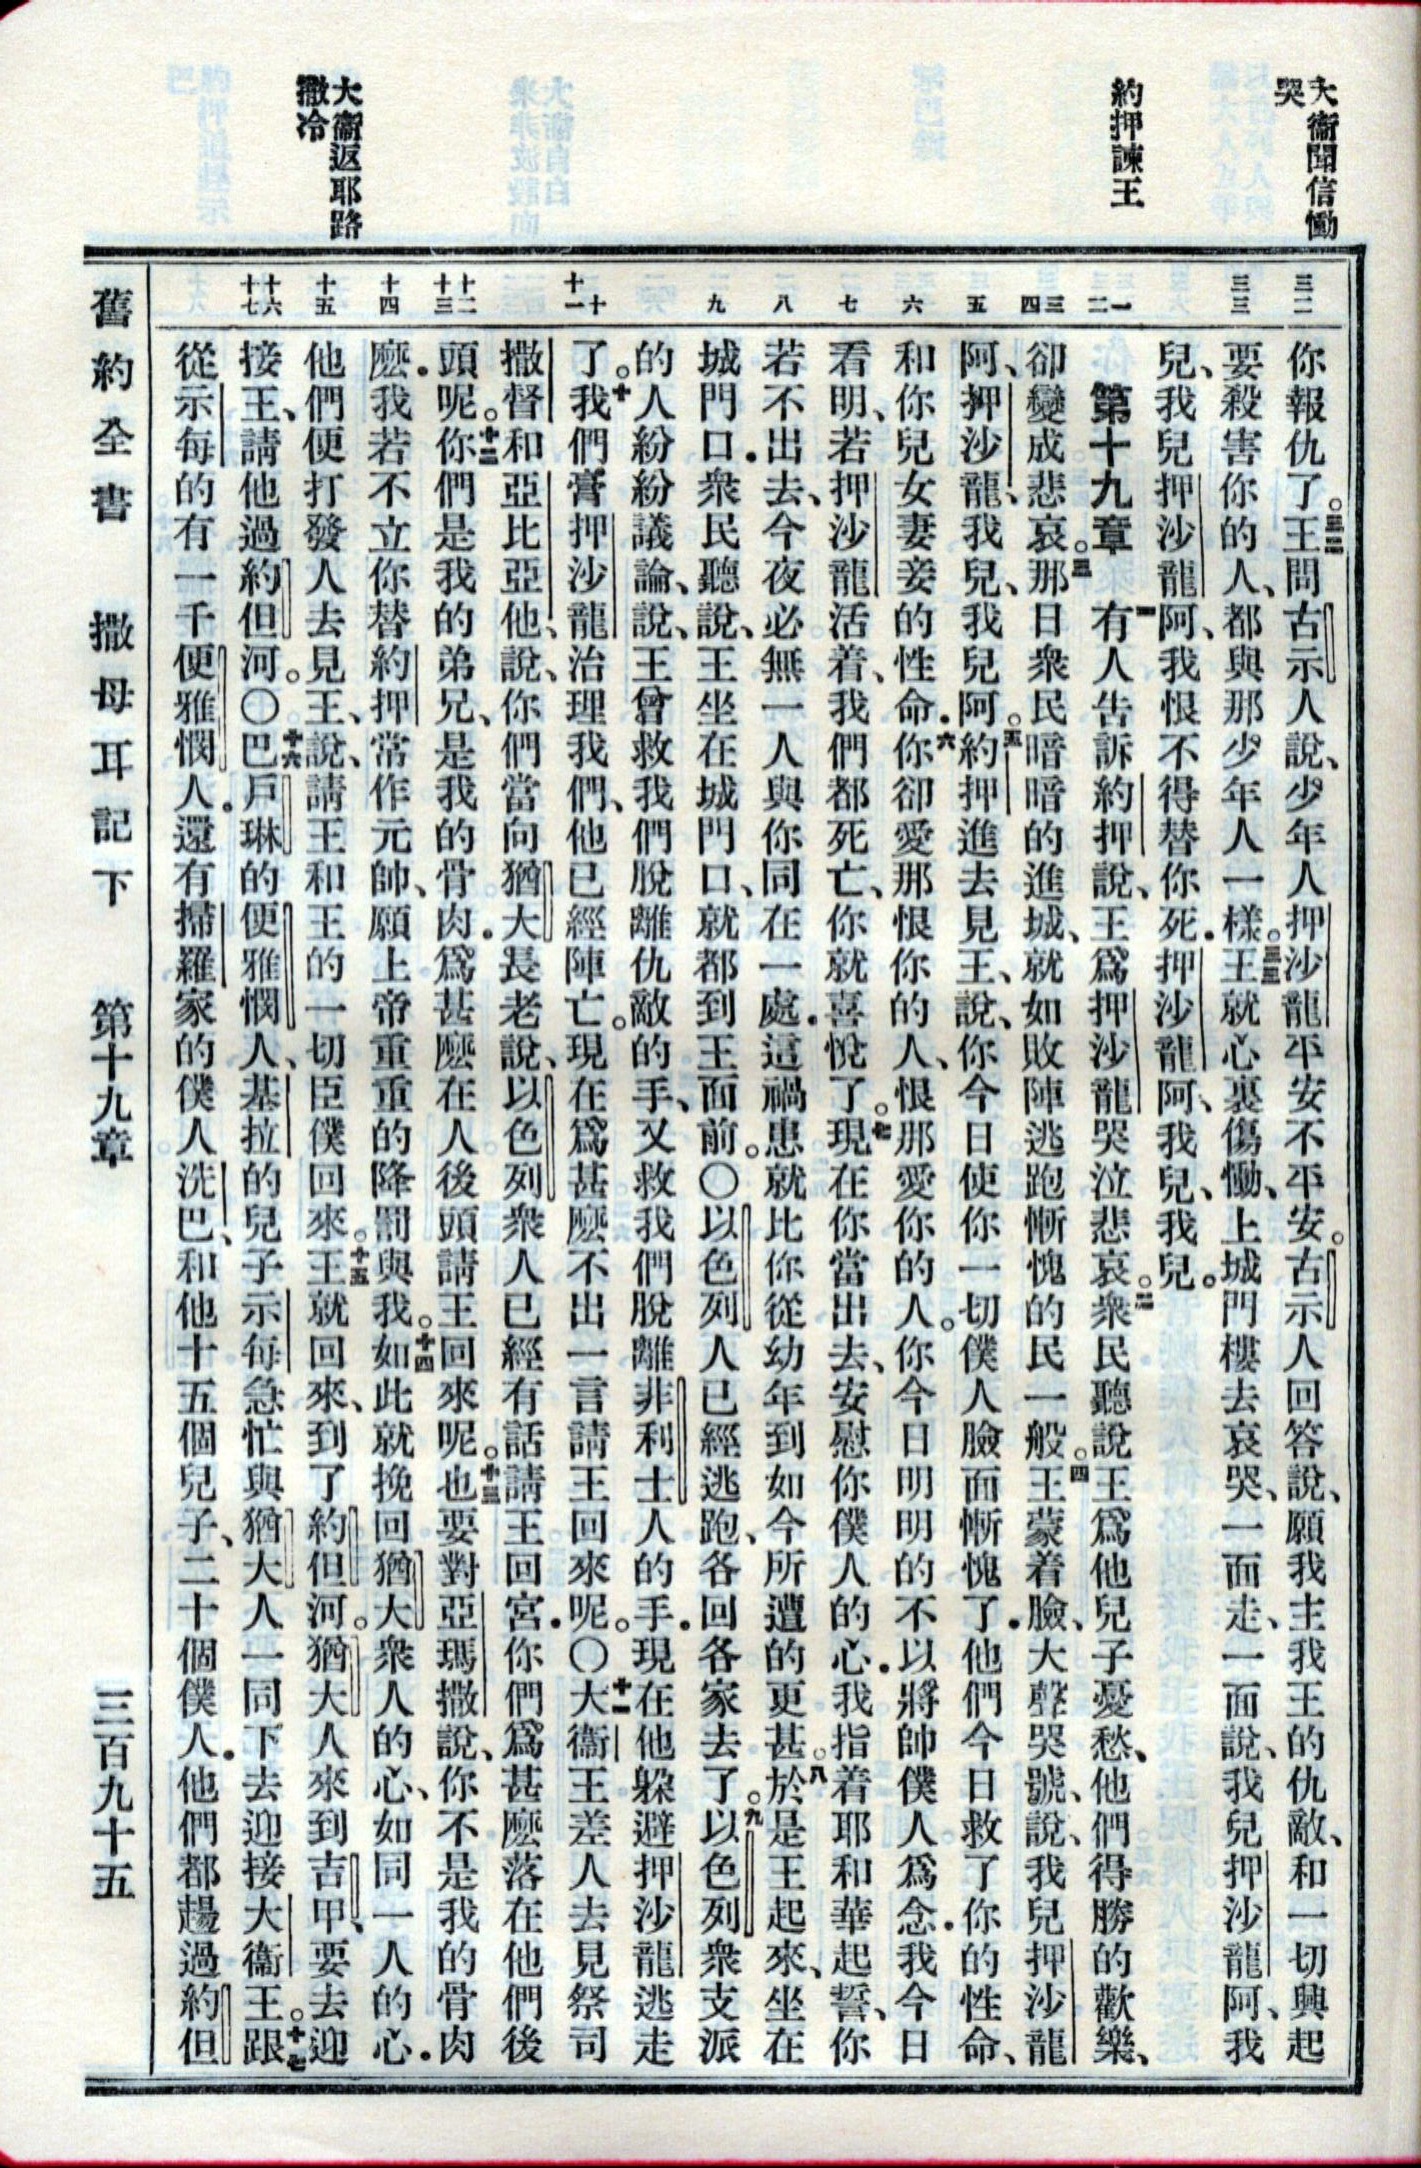 大衞聞信慟
哭
約押諫王
大衞返耶路
撒冷
三二
三三
一
二
三
四
五
六
七
八
九
十
十一
十二
十三
十四
十五
十六
十七
你報仇了。三二王問古示人說、少年人押沙龍平安不平安。古示人回答說、願我主我王的仇敵、和一切興起
要殺害你的人、都與那少年人一樣。三三王就心裏傷慟、上城門樓去哀哭、一面走、一面說、我兒押沙龍阿、我
兒、我兒押沙龍阿、我恨不得替你死．押沙龍阿、我兒、我兒。
第十九章 一有人告訴約押說、王爲押沙龍哭泣悲哀。二衆民聽說王爲他兒子憂愁、他們得勝的歡樂、
卻變成悲哀。三那日衆民暗暗的進城、就如敗陣逃跑慚愧的民一般。四王蒙着臉、大聲哭號、說、我兒押沙龍
阿、押沙龍、我兒、我兒阿。五約押進去見王、說、你今日使你一切僕人臉面慚愧了．他們今日救了你的性命、
和你兒女妻妾的性命．六你卻愛那恨你的人、恨那愛你的人。你今日明明的不以將帥僕人爲念．我今日
看明、若押沙龍活着、我們都死亡、你就喜悅了。七現在你當出去、安慰你僕人的心．我指着耶和華起誓、你
若不出去、今夜必無一人與你同在一處．這禍患就比你從幼年到如今所遭的更甚。八於是王起來、坐在
城門口．衆民聽說、王坐在城門口、就都到王面前。〇以色列人已經逃跑、各回各家去了。九以色列衆支派
的人紛紛議論、說、王曾救我們脫離仇敵的手、又救我們脫離非利士人的手．現在他躱避押沙龍逃走
了。十我們膏押沙龍治理我們、他已經陣亡。現在爲甚麼不出一言請王回來呢。〇十一大衞王差人去見祭司
撒督和亞比亞他、說、你們當向猶大長老說、以色列衆人已經有話請王回宮．你們爲甚麼落在他們後
頭呢。十二你們是我的弟兄、是我的骨肉．爲甚麼在人後頭請王回來呢。十三也要對亞瑪撒說、你不是我的骨肉
麼．我若不立你替約押常作元帥、願上帝重重的降罰與我。十四如此就挽回猶大衆人的心、如同一人的心．
他們便打發人去見王、說、請王和王的一切臣僕回來。十五王就回來、到了約但河。猶大人來到吉甲、要去迎
接王、請他過約但河。〇十六巴戶琳的便雅憫人、基拉的兒子示每、急忙與猶大人一同下去迎接大衞王。十七跟
從示每的有一千便雅憫人．還有掃羅家的僕人洗巴、和他十五個兒子、二十個僕人．他們都趟過約但
舊約全書 撒母耳記下 第十九章 三百九十五